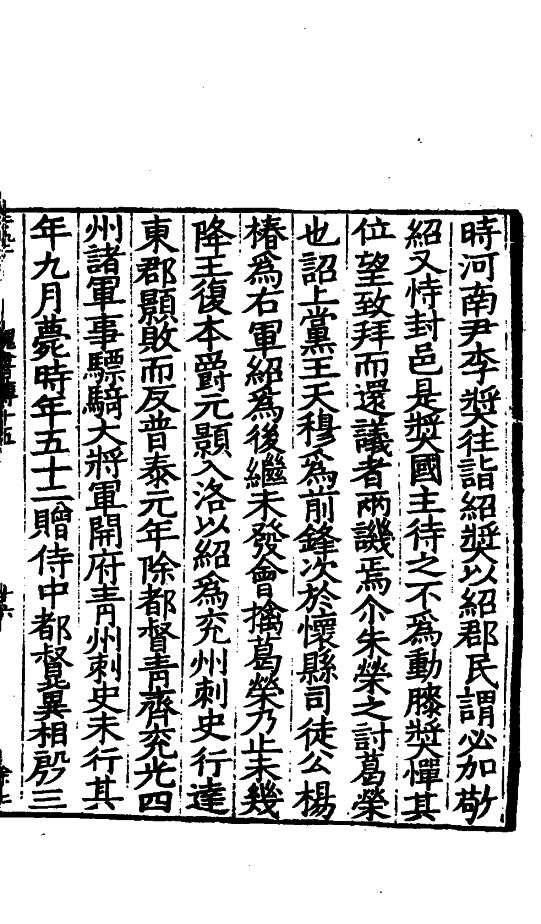 時河南尹李奬往詣紹奬以紹郡民謂必加敬
紹又恃封邑是奬國主待之不爲動膝奬憚其
位望致拜而還議者兩譏焉尒朱榮之討葛榮
也詔上黨王天穆爲前鋒次於懷縣司徒公楊
椿爲右軍紹爲後繼未發會擒葛榮乃止未幾
降王復本爵元顥入洛以紹爲兖州刺史行達
東郡顥敗而反普泰元年除都督青齊兖光四
州諸軍事驃騎大將軍開府青州刺史未行其
年九月薨時年五十二贈侍中都督冀相殷三